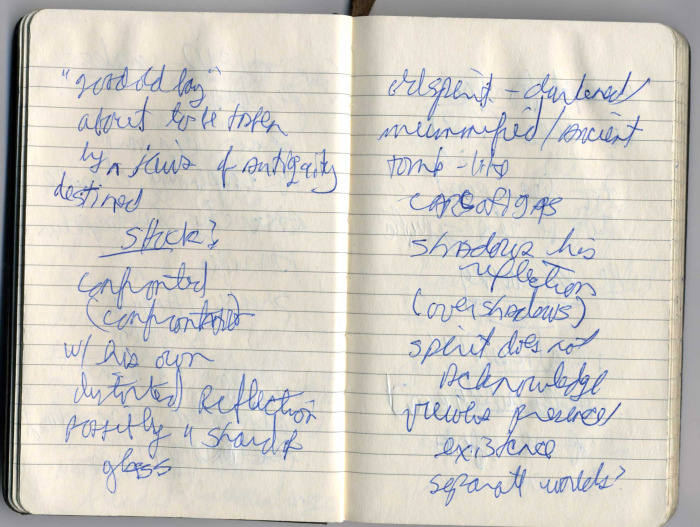 "good old boy"
about to be taken
by ruins of antiquity
destined
stuck?
confronted
(confronted
w/ his own
distorted reflection
possibly "shard of
glass
old spirit - darkened/
mummified/ancient
tomb-like
shadows his
reflection
(overshadows)
spirit does not
acknowledge
viewers presence/
existence
separate worlds?